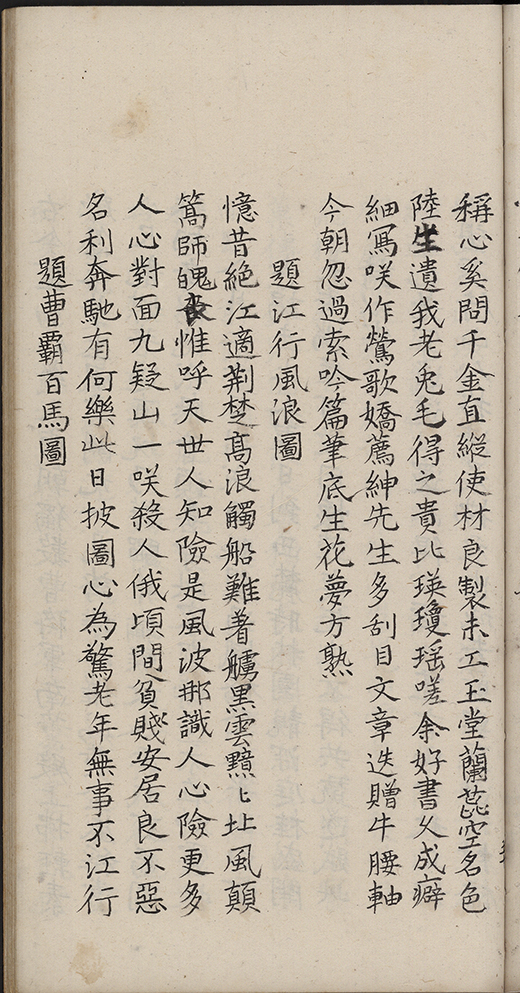 稱心奚問千金直縱使材良製未工玉堂蘭蕊空名色
陸生遺我老兎毛得之貴比瑛瓊瑶嗟余好書久成癖
細寫咲作鶯歌嬌薦紳先生多刮目文章迭贈牛腰軸
今朝忽過索吟篇筆底生花夢方熟
題江行風浪圖
憶昔絶江適荆楚髙浪觸船難著艣黒雲黯〻北風顛
篙師魄丧惟呼天世人知險是風波那識人心險更多
人心對面九疑山一咲殺人俄頃間貧賤安居良不惡
名利奔馳有何樂此日披圖心為驚老年無事不江行
題曹霸百馬圖